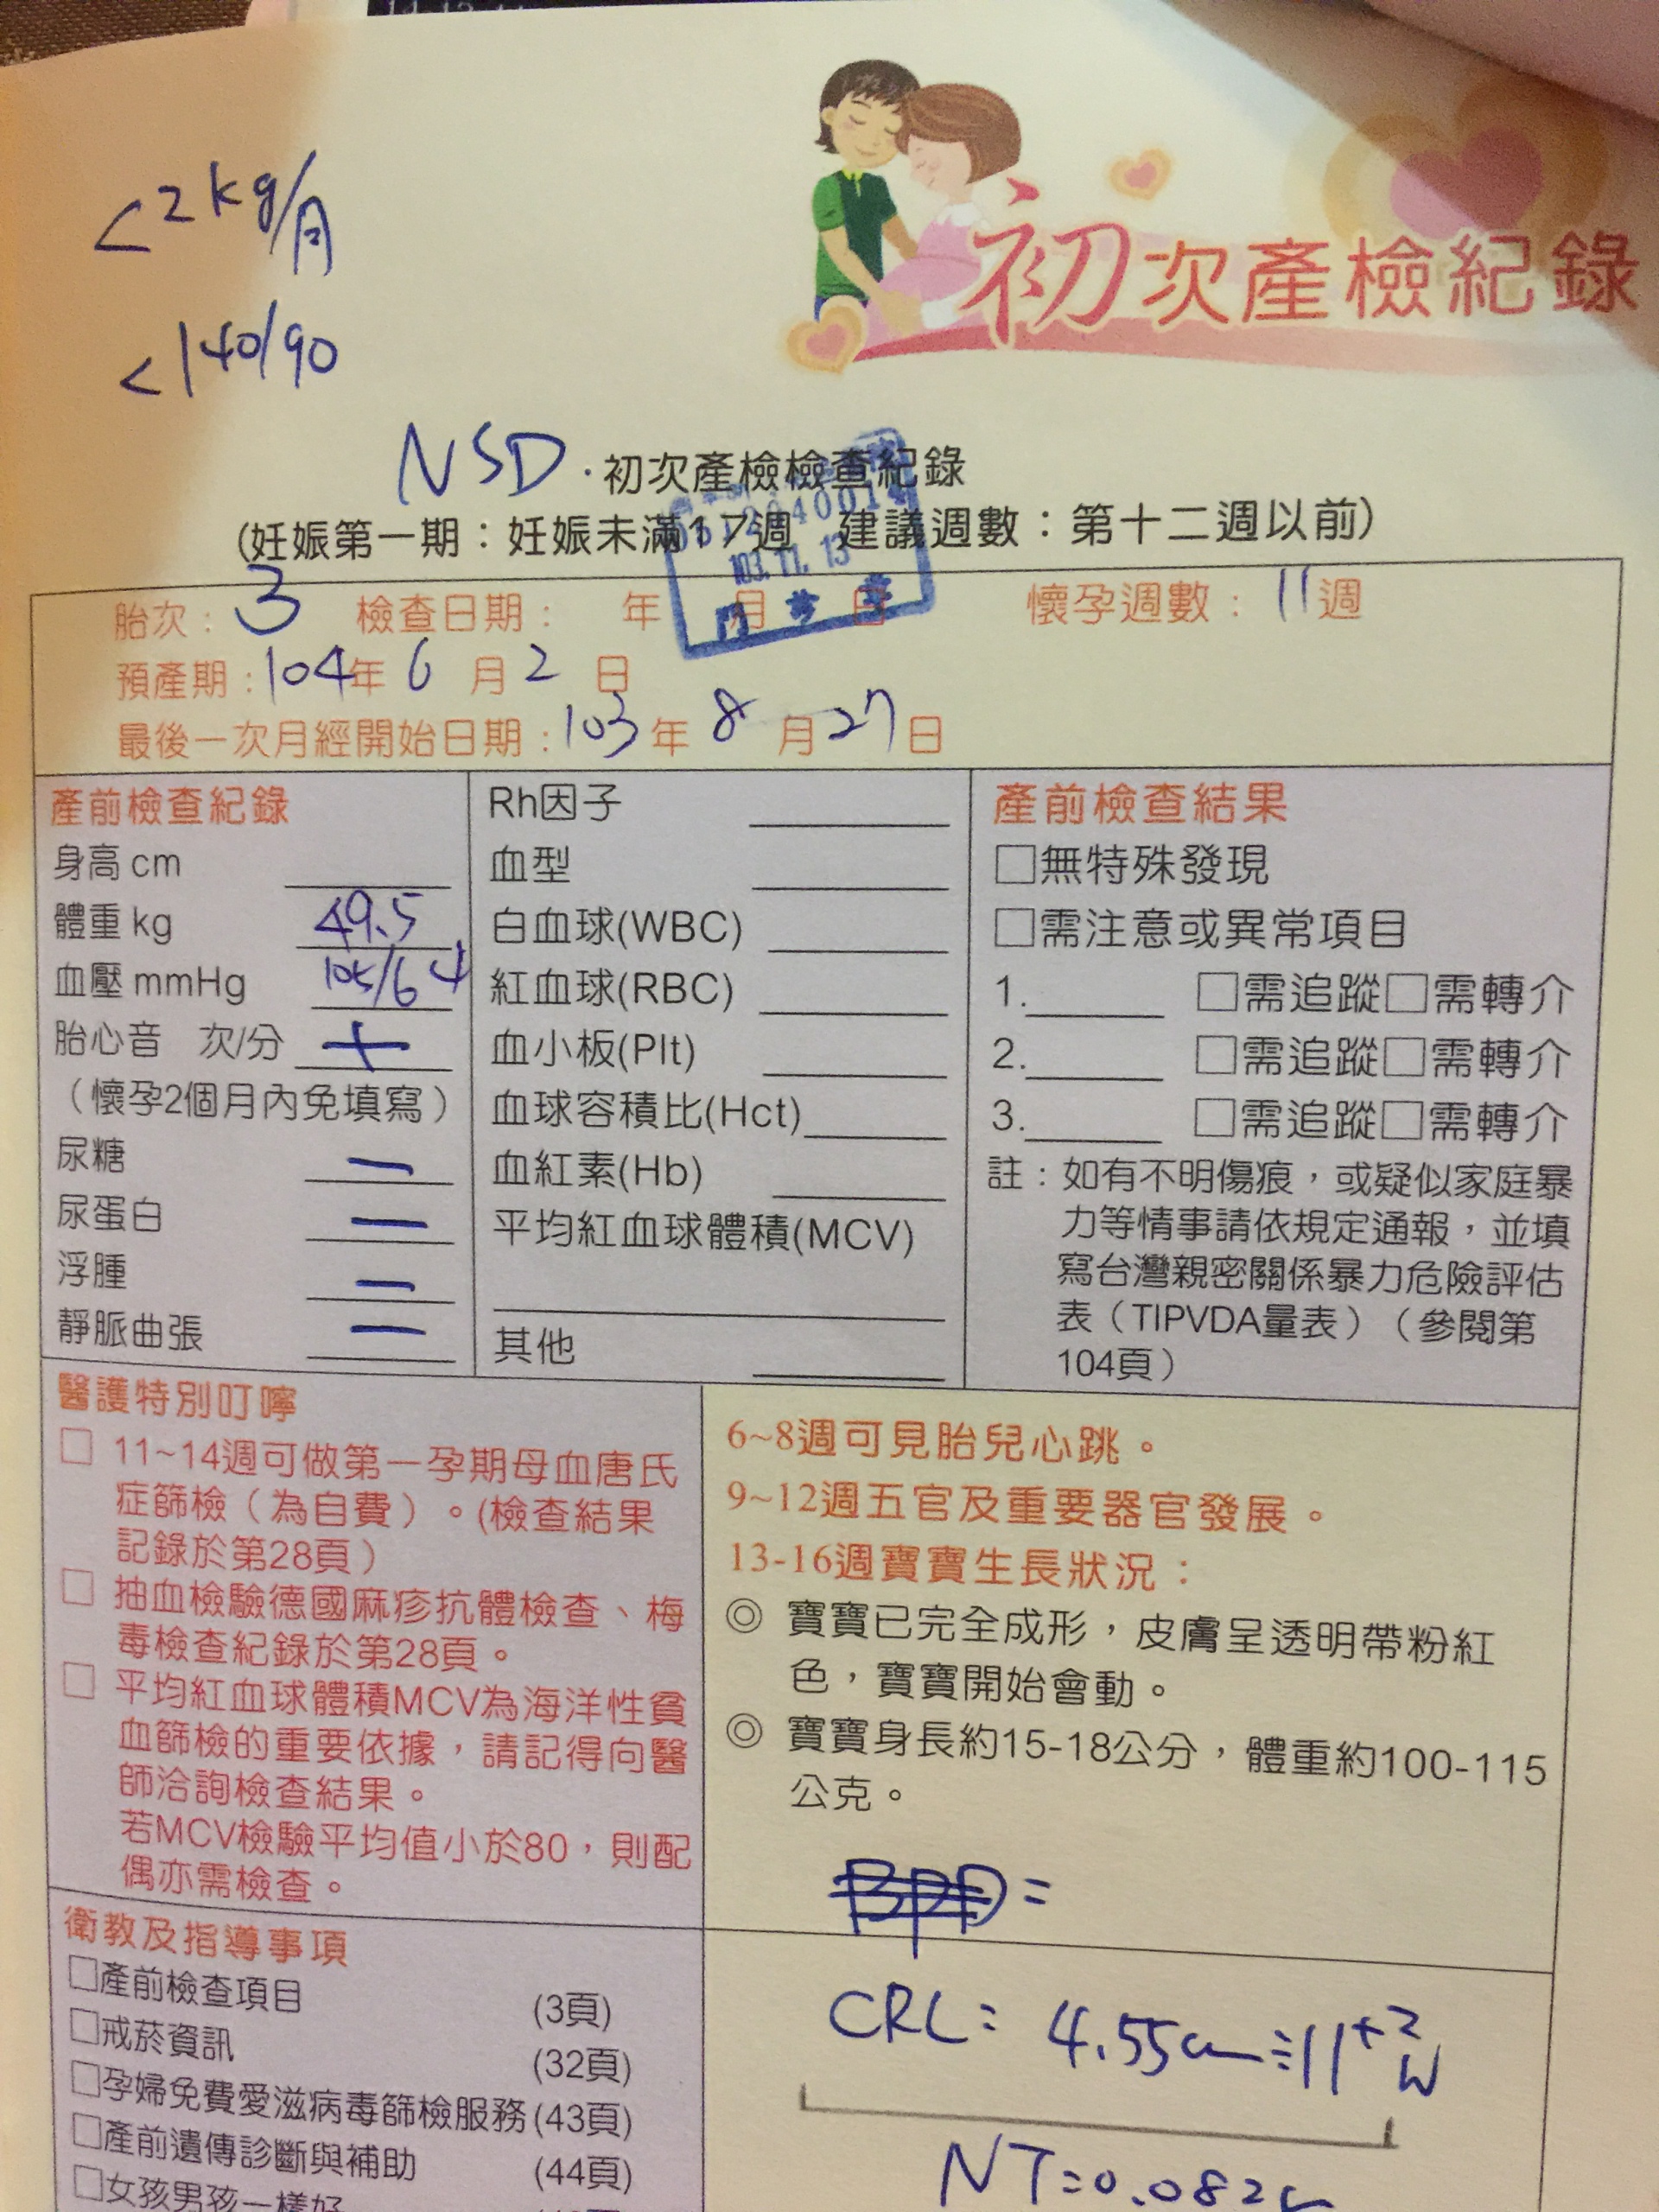 <2kg/月
<140/90
初次產檢紀錄
NSD · 初次產檢檢查紀錄
(妊娠第一期：妊娠未滿17週 建議週數：第十二週以前)
103.11.13
門診章
胎次：3 檢查日期： 年 月 日 懷孕週數：11週
預產期：104年6月2日
最後一次月經開始日期：103年8月27日
產前檢查紀錄
身高 cm
體重 kg 49.5
血壓 mmHg 105/64
胎心音 次/分 +
（懷孕2個月內免填寫）
尿糖 —
尿蛋白 —
浮腫 —
靜脈曲張 —
Rh因子
血型
白血球(WBC)
紅血球(RBC)
血小板(Plt)
血球容積比(Hct)
血紅素(Hb)
平均紅血球體積(MCV)
其他
產前檢查結果
□無特殊發現
□需注意或異常項目
1.______ □需追蹤□需轉介
2.______ □需追蹤□需轉介
3.______ □需追蹤□需轉介
註：如有不明傷痕，或疑似家庭暴
力等情事請依規定通報，並填
寫台灣親密關係暴力危險評估
表（TIPVDA量表）（參閱第
104頁）
醫護特別叮嚀
□ 11~14週可做第一孕期母血唐氏
症篩檢（為自費）。(檢查結果
記錄於第28頁）
□ 抽血檢驗德國麻疹抗體檢查、梅
毒檢查紀錄於第28頁。
□ 平均紅血球體積MCV為海洋性貧
血篩檢的重要依據，請記得向醫
師洽詢檢查結果。
若MCV檢驗平均值小於80，則配
偶亦需檢查。
6~8週可見胎兒心跳。
9~12週五官及重要器官發展。
13-16週寶寶生長狀況：
◎ 寶寶已完全成形，皮膚呈透明帶粉紅
色，寶寶開始會動。
◎ 寶寶身長約15-18公分，體重約100-115
公克。
BPD=
CRL= 4.55cm≒11+2W
NT=0.082c
衛教及指導事項
□產前檢查項目 (3頁)
□戒菸資訊 (32頁)
□孕婦免費愛滋病毒篩檢服務(43頁)
□產前遺傳診斷與補助 (44頁)
□女孩男孩一樣好